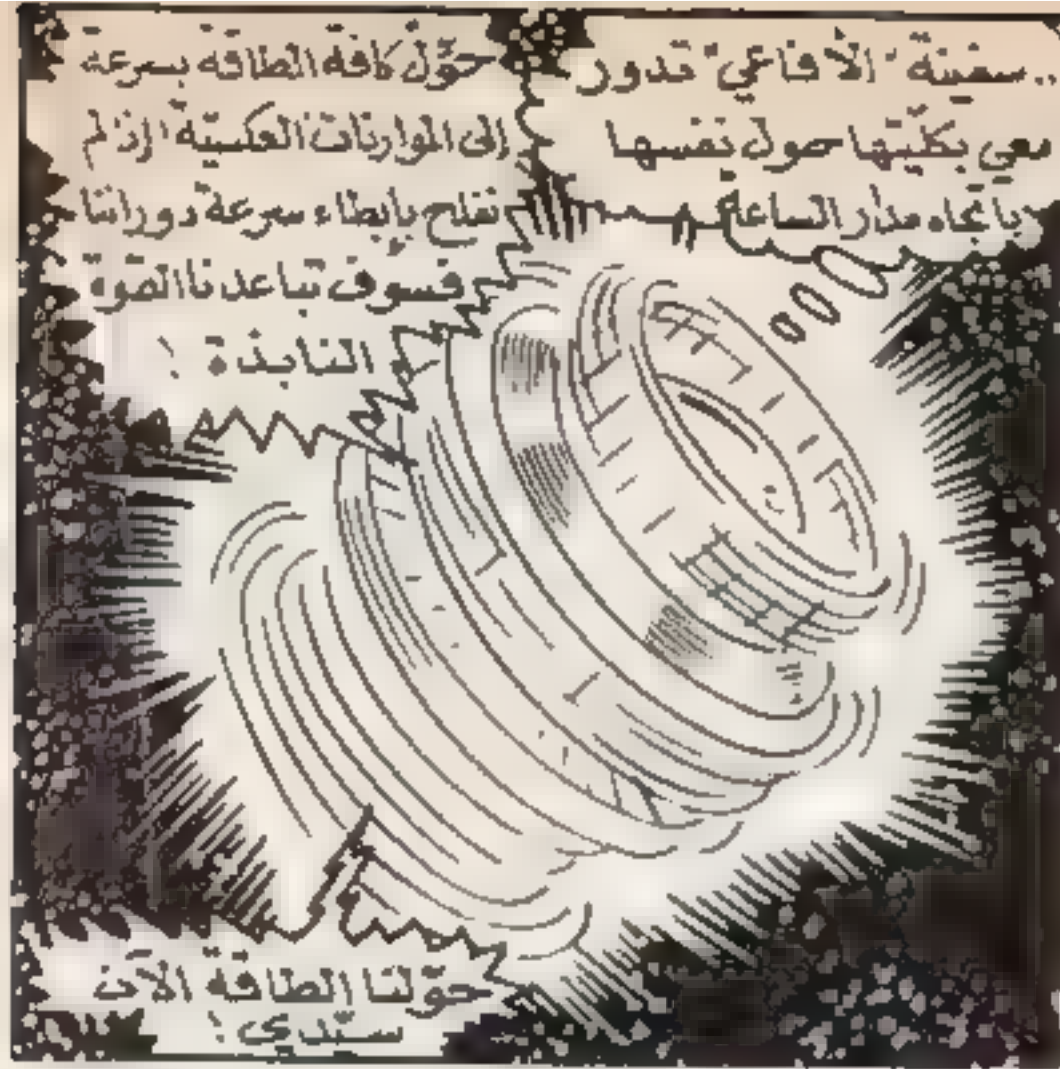 .. سفينة "الأفاعي" تدور
معي بكليّتها حول نفسها
باتجاه مدار الساعة
حوّل كافة الطاقة بسرعة
إلى الموازنات العكسيّة، إذ لم
نفلح بإبطاء سرعة دوراننا
فسوف تباعدنا القوة
النابذة !
حوّلنا الطاقة الآن
سيّدي !